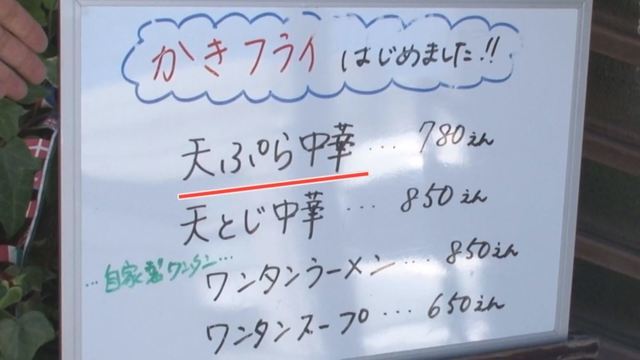 かきフライ はじめました!!
天ぷら中華…780えん
天とじ中華…850えん
…自家製ワンタン…
ワンタンラーメン…850えん
ワンタンスープ…650えん